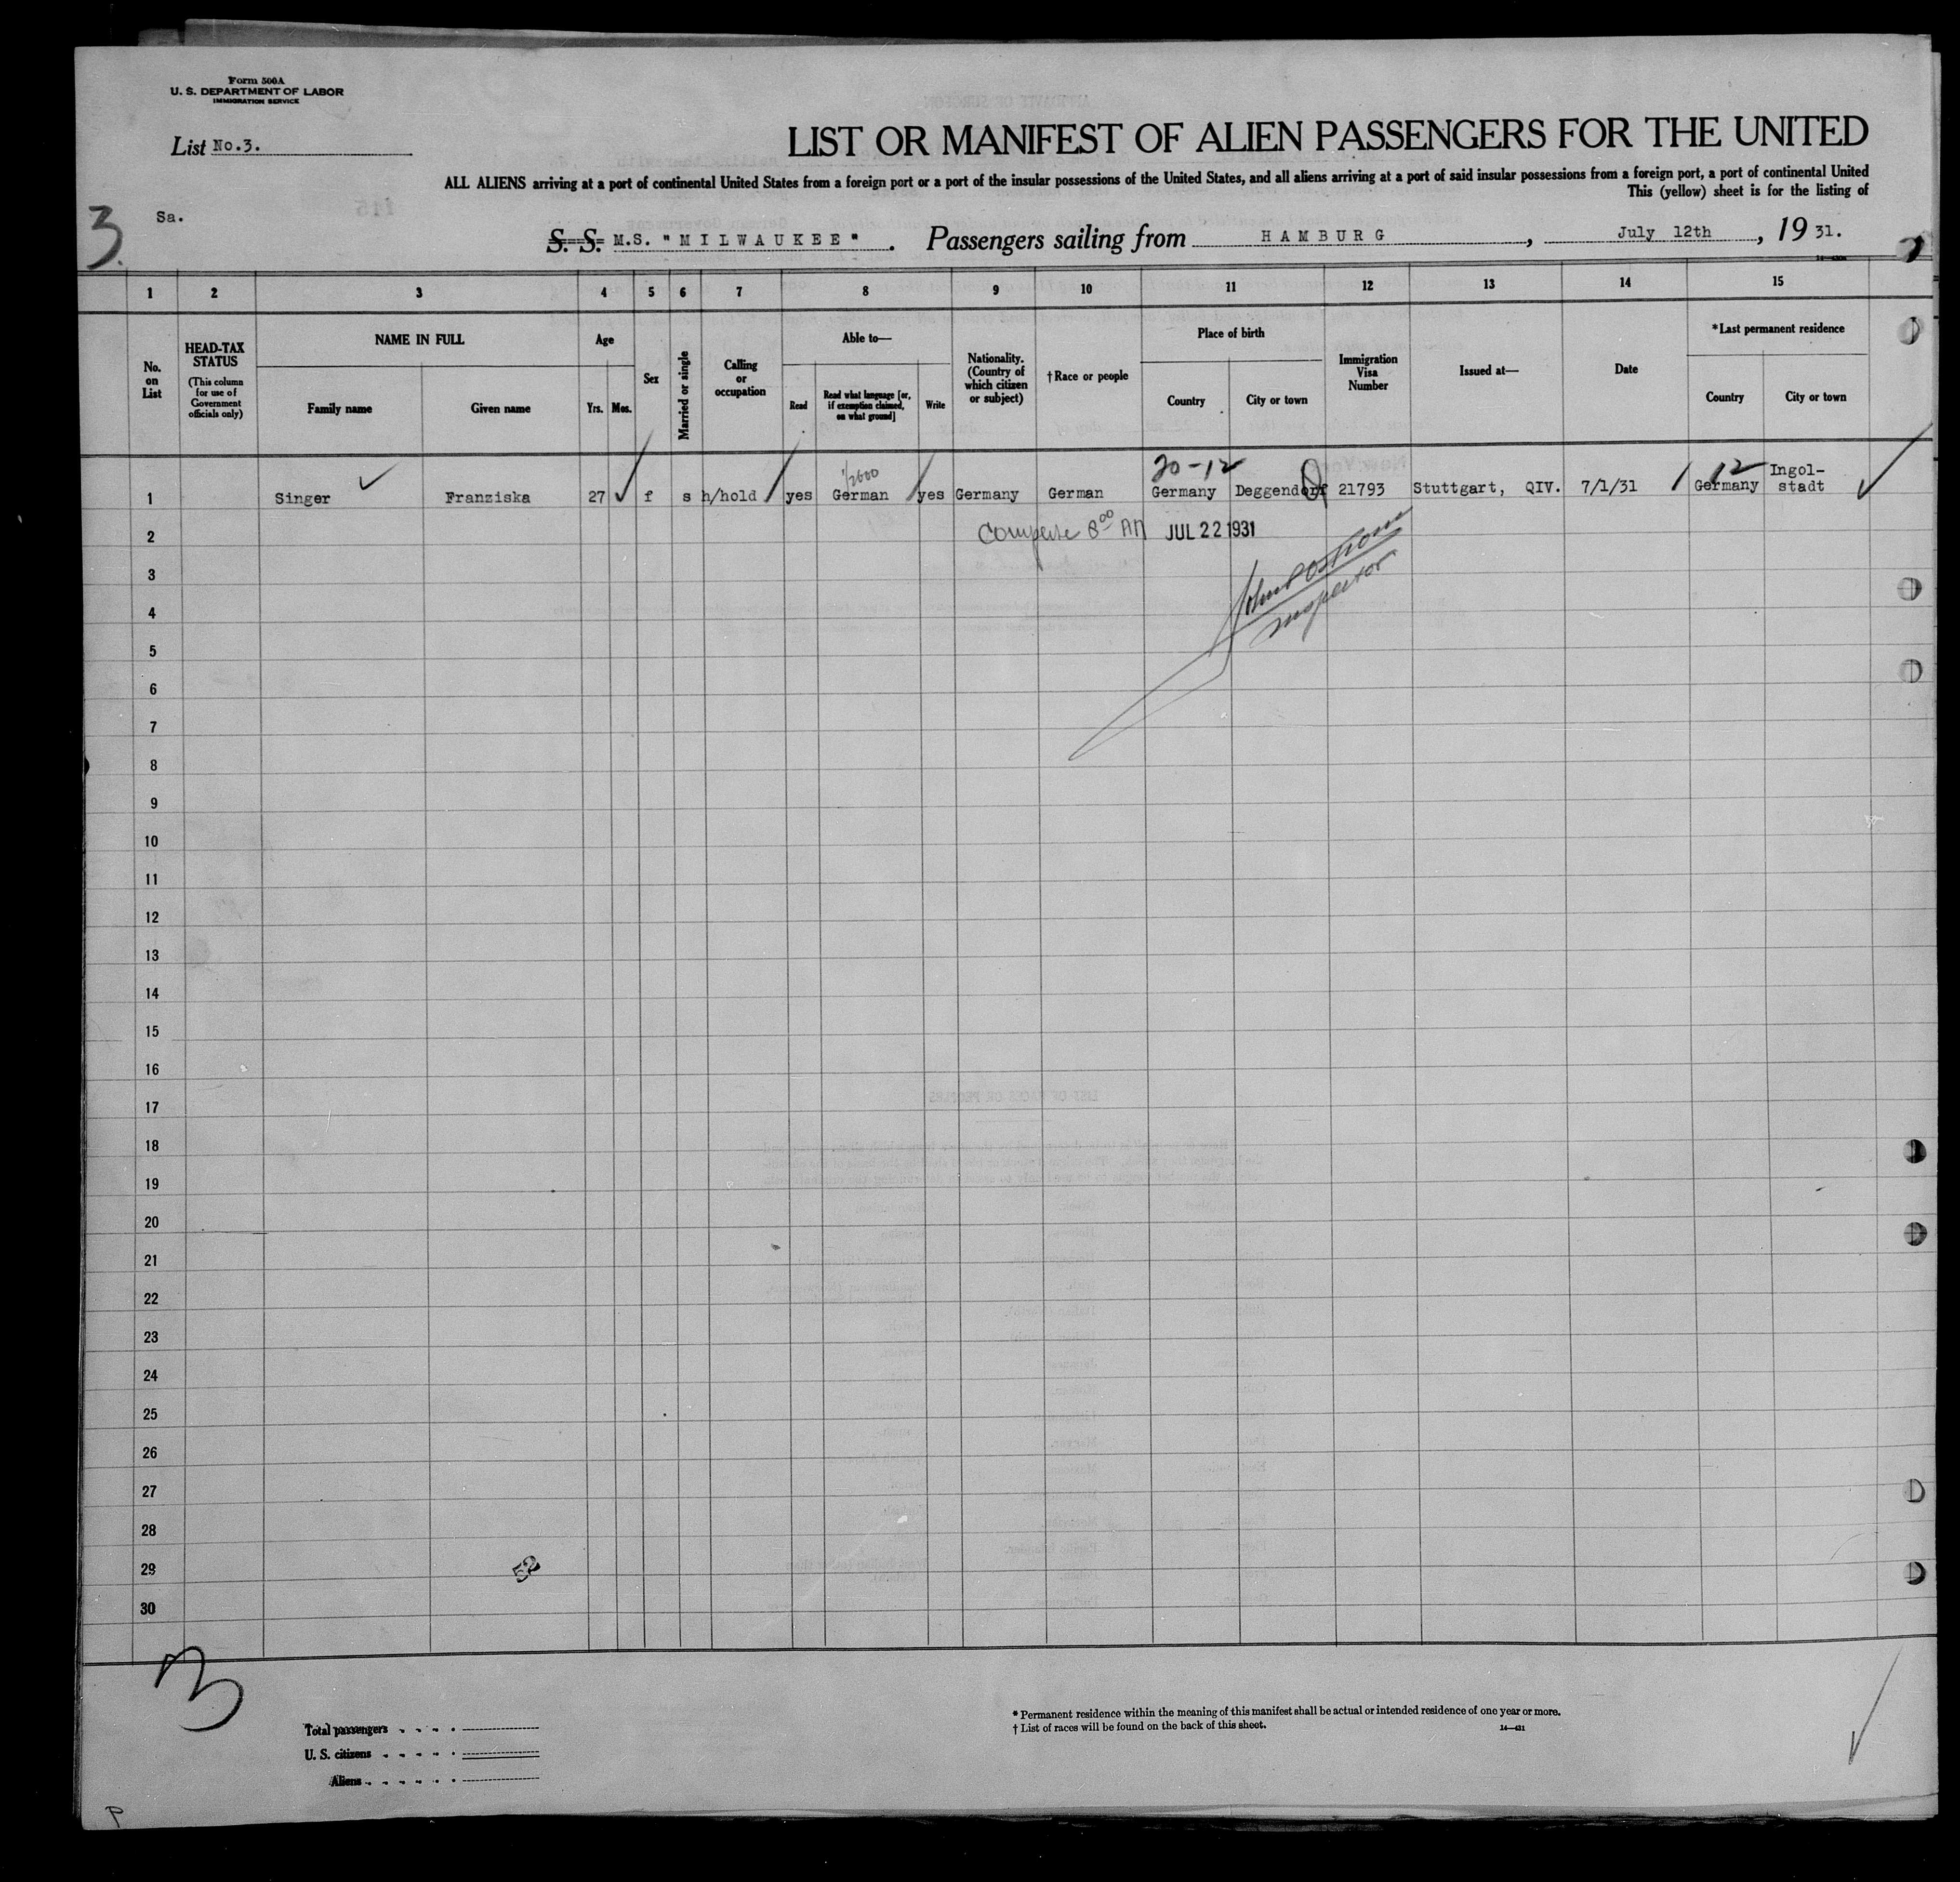 Form 500A
U. S. DEPARTMENT OF LABOR
IMMIGRATION SERVICE
List No.3.
LIST OR MANIFEST OF ALIEN PASSENGERS FOR THE UNITED
ALL ALIENS arriving at a port of continental United States from a foreign port or a port of the insular possessions of the United States, and all aliens arriving at a port of said insular possessions from a foreign port, a port of continental United
This (yellow) sheet is for the listing of
3.
Sa.
S. S. M.S. "MILWAUKEE". Passengers sailing from HAMBURG, July 12th, 19 31.
1 2 3 4 5 6 7 8 9 10 11 12 13 14 15
No. on List
HEAD-TAX STATUS
(This column for use of Government officials only)
NAME IN FULL
Family name
Given name
Age
Yrs. Mos.
Sex
Married or single
Calling or occupation
Able to—
Read
Read what language [or, if exemption claimed, on what ground]
Write
Nationality. (Country of which citizen or subject)
†Race or people
Place of birth
Country
City or town
Immigration Visa Number
Issued at—
Date
*Last permanent residence
Country
City or town
20-12
12
1 Singer Franziska 27 f s h/hold yes German yes Germany German Germany Deggendorf 21793 Stuttgart, QIV. 7/1/31 Germany Ingol-stadt
2 8⁰⁰ AM JUL 22 1931
Inspector
3
4
5
6
7
8
9
10
11
12
13
14
15
16
17
18
19
20
21
22
23
24
25
26
27
28
29
52
30
3
Total passengers
U. S. citizens
Aliens
* Permanent residence within the meaning of this manifest shall be actual or intended residence of one year or more.
† List of races will be found on the back of this sheet.
14—431